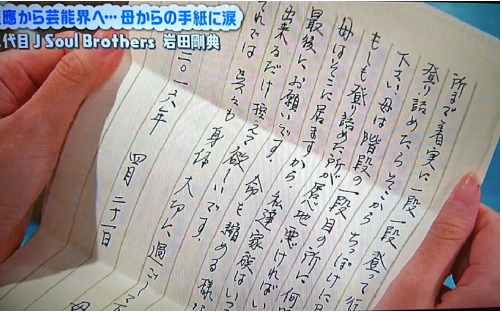 應から芸能界へ…母からの手紙に涙
代目 J Soul Brothers 岩田剛典
所まで着実に一段一段登って行
登り詰めたらそこからちっぽけに
下さい。母は階段の一段目の所に何時
もしも登り詰めた所が居心地悪ければい
母はそこに居ますから、私達家族はいつ
最後にお願いです。命を縮める様
出来るだけ控えて欲しいです。
それでは 呉々も身体大切に過ごして
二〇一六年 四月二十一日
母